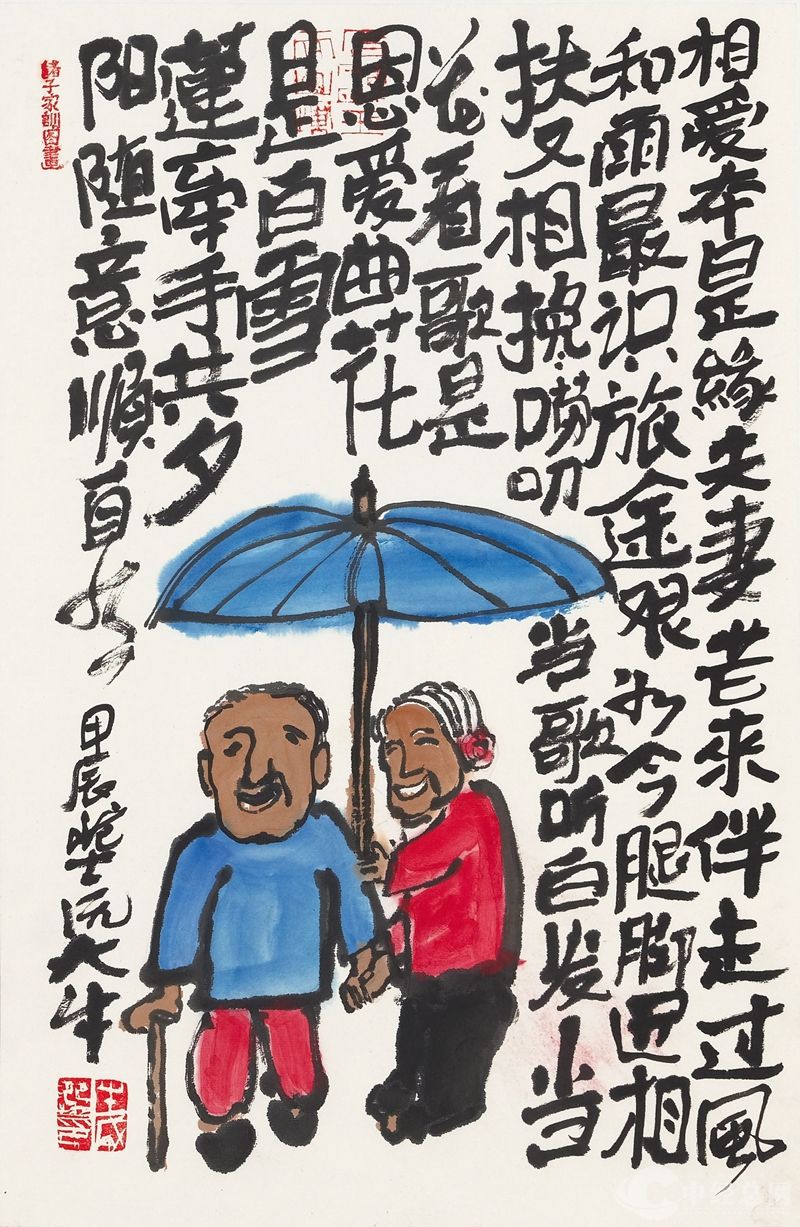 相爱本是緣夫妻老来伴走过風
和雨最识旅途艰如今腿脚迟相
扶又相搀唠叨当歌听白发当
花看歌是
恩爱曲花
是白雪
蓮牵手共夕
阳随意順自然
甲辰